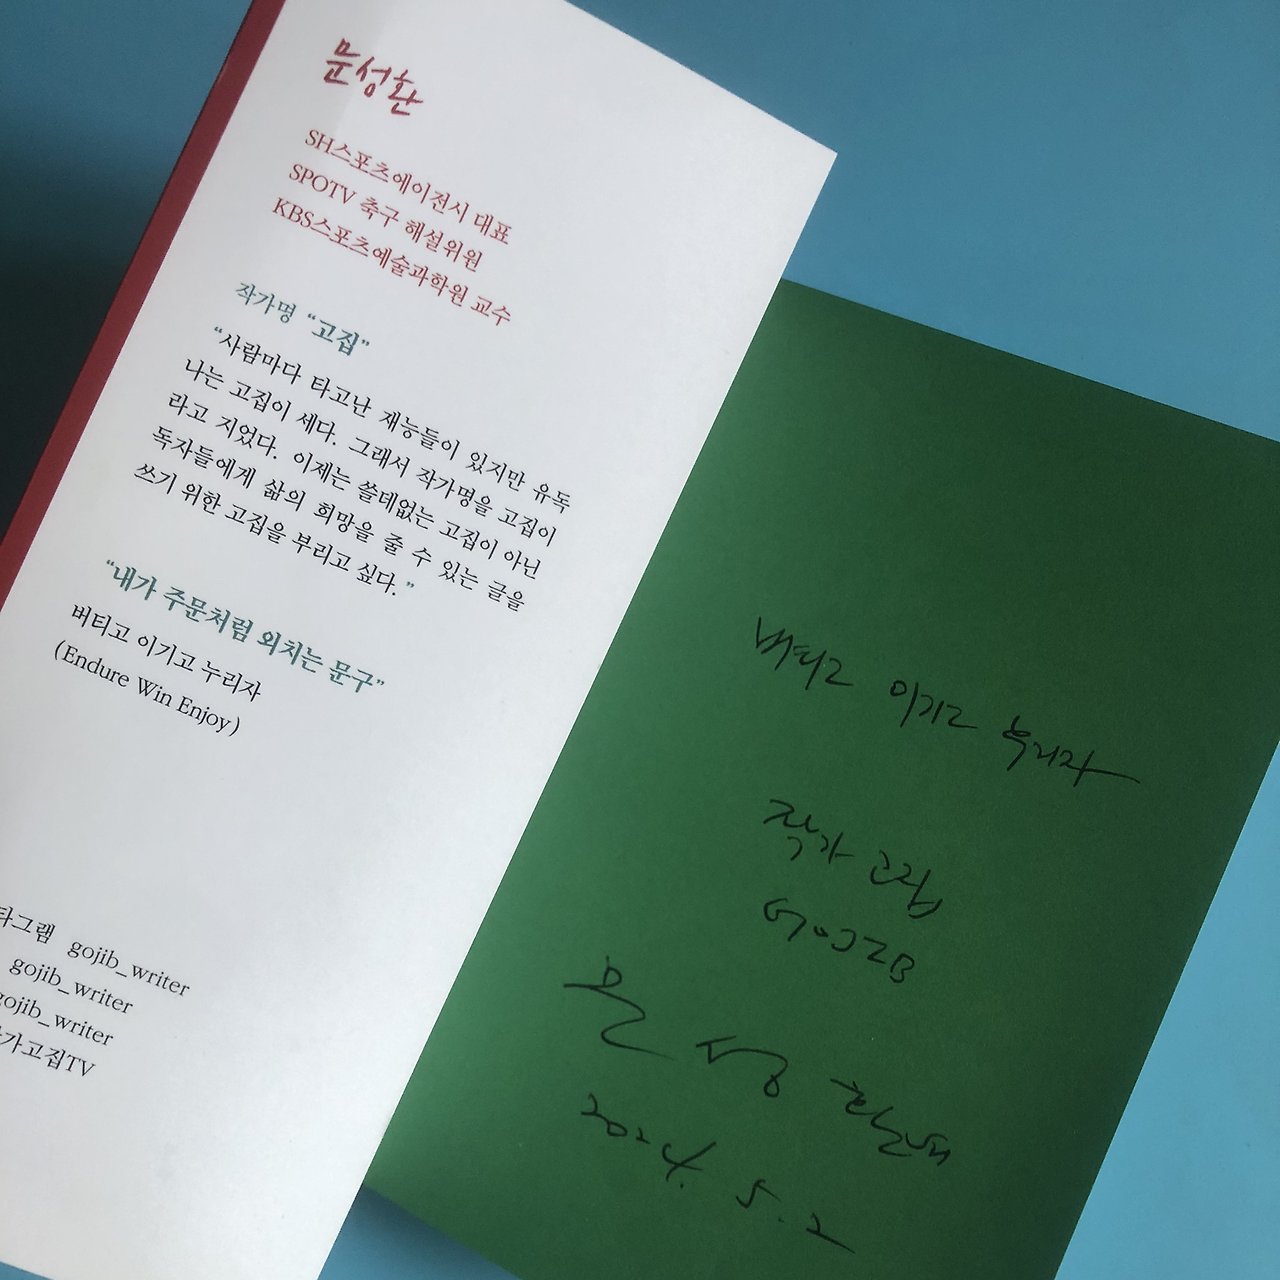 문성환
SH스포츠에이전시 대표
SPOTV 축구 해설위원
KBS스포츠예술과학원 교수
작가명 “고집”
“사람마다 타고난 재능들이 있지만 유독
나는 고집이 세다. 그래서 작가명을 고집이
라고 지었다. 이제는 쓸데없는 고집이 아닌
독자들에게 삶의 희망을 줄 수 있는 글을
쓰기 위한 고집을 부리고 싶다.”
“내가 주문처럼 외치는 문구”
버티고 이기고 누리자
(Endure Win Enjoy)
타그램 gojib_writer
gojib_writer
gojib_writer
가고집TV
버티고 이기고 누리자
작가 고집
GOJIB
문성환
2024. 5. 2